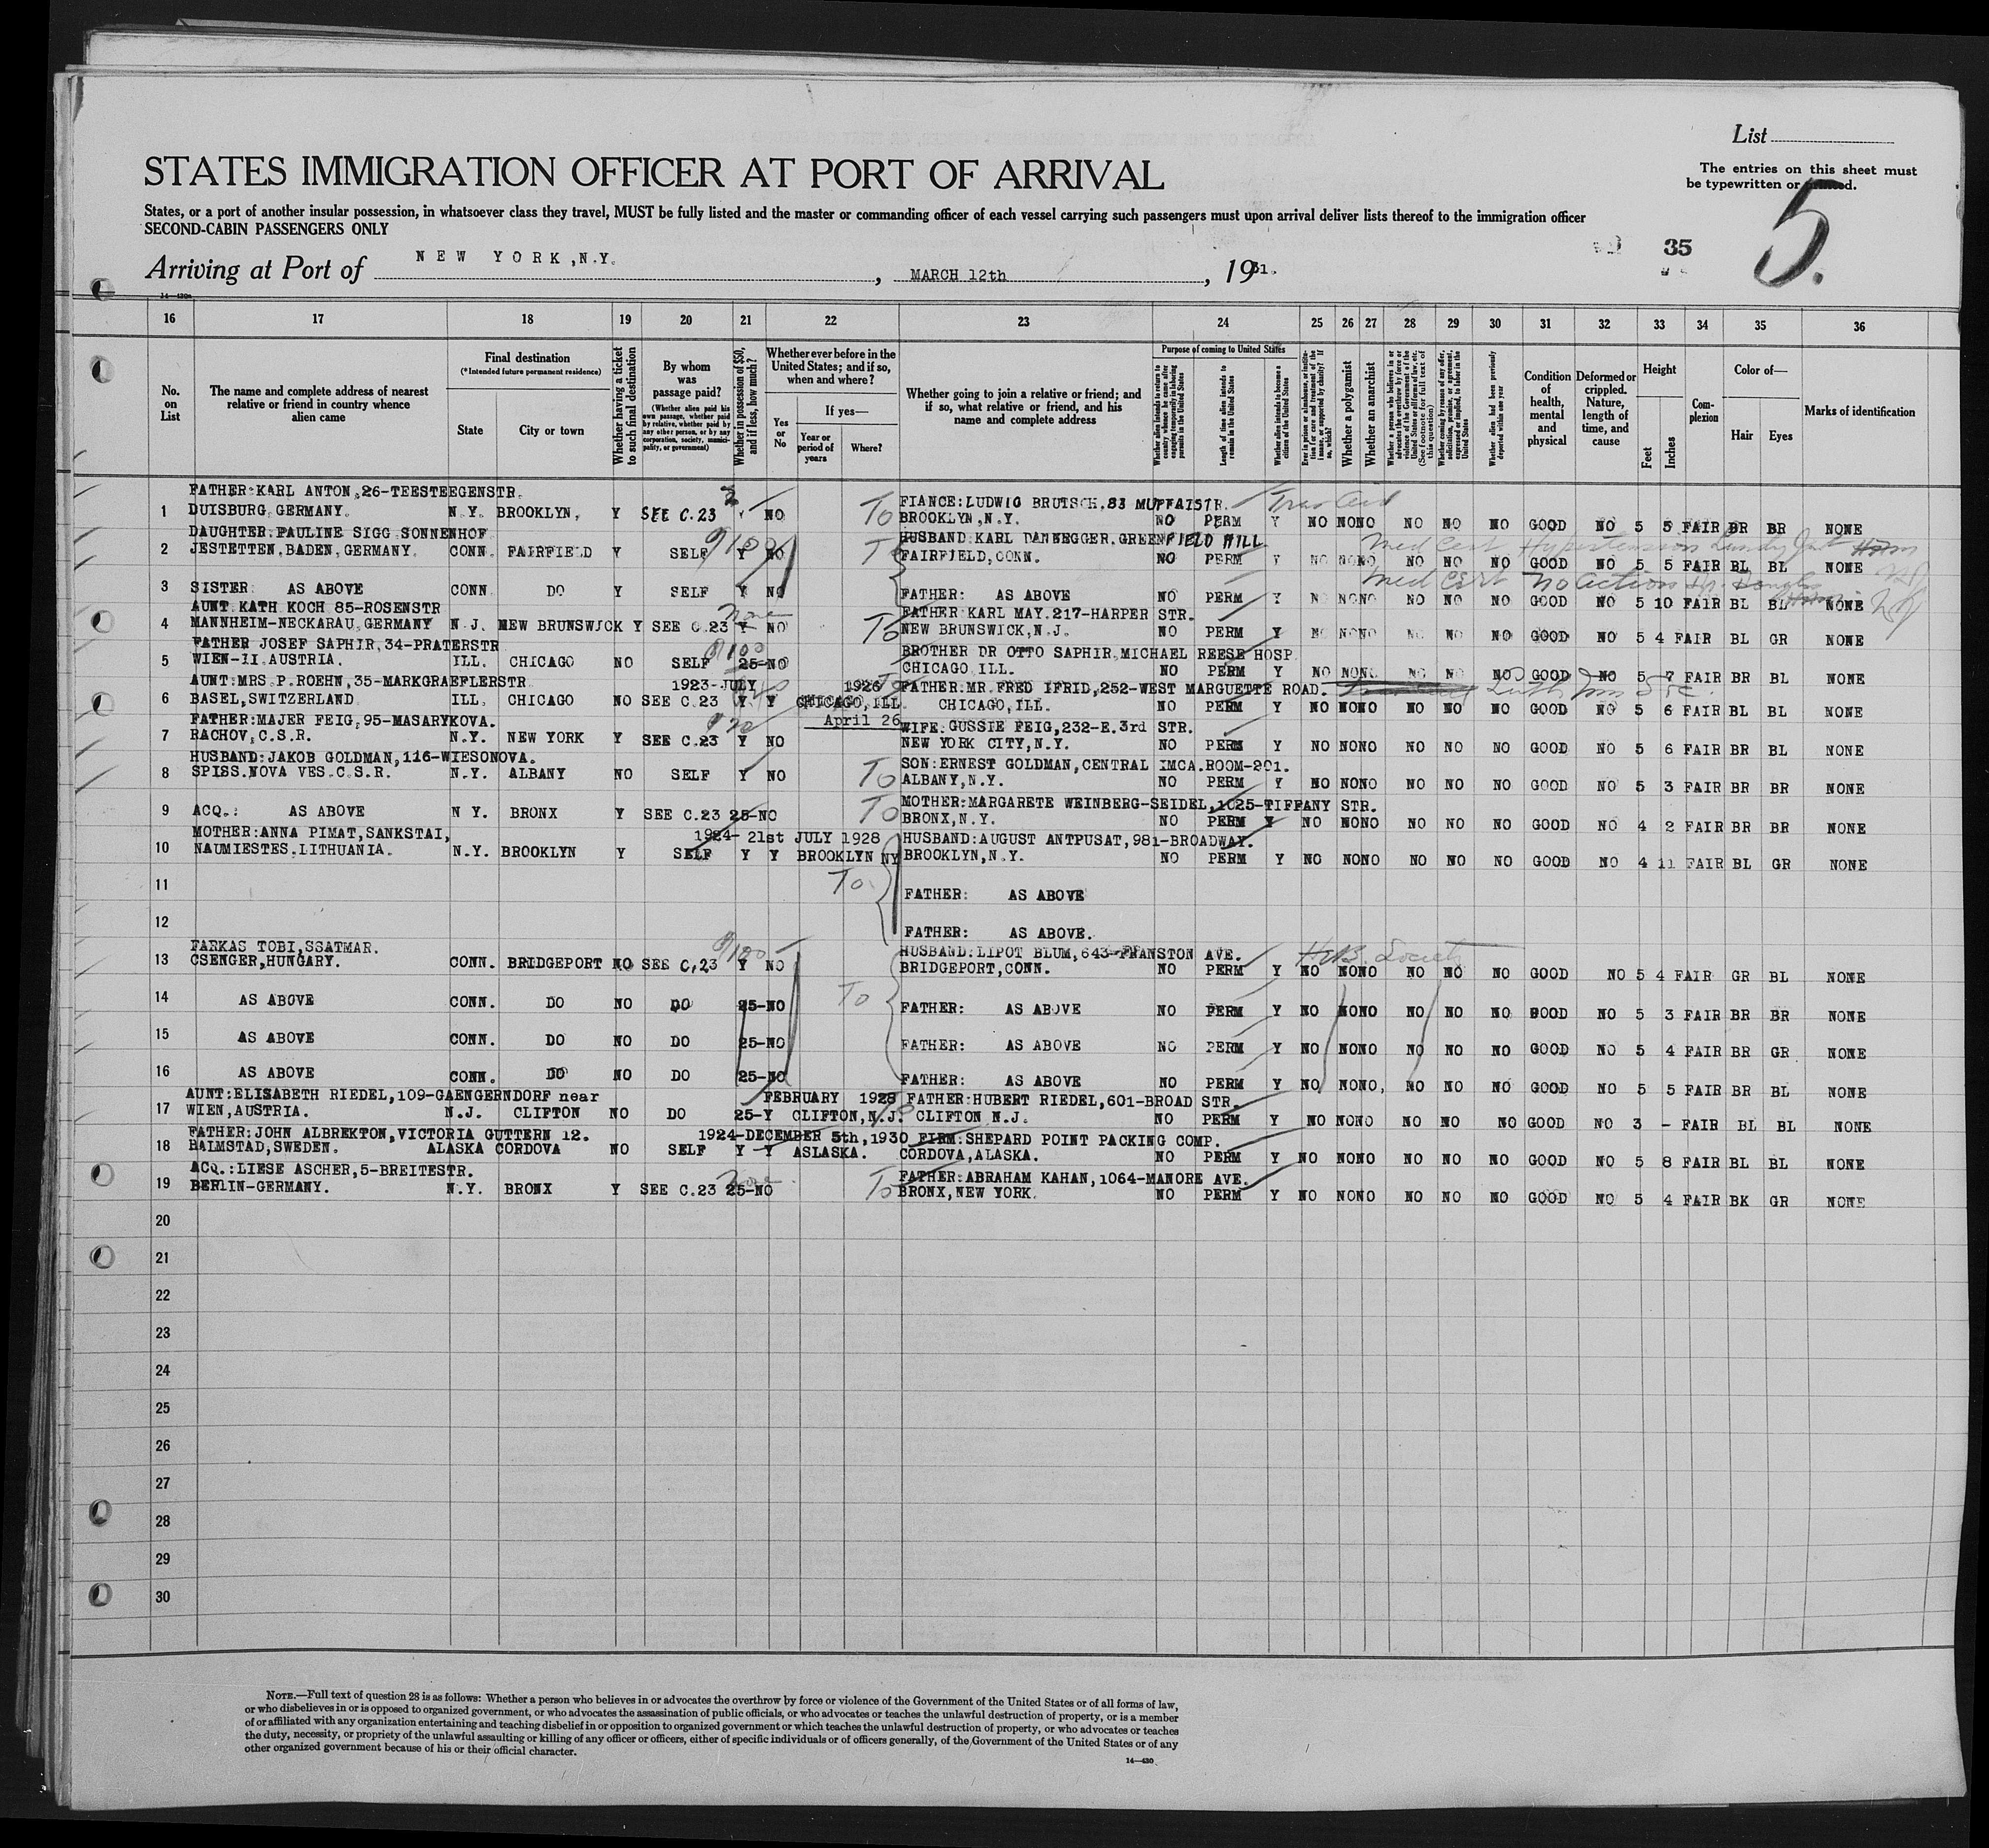 List
The entries on this sheet must
be typewritten or printed.
STATES IMMIGRATION OFFICER AT PORT OF ARRIVAL
States, or a port of another insular possession, in whatsoever class they travel, MUST be fully listed and the master or commanding officer of each vessel carrying such passengers must upon arrival deliver lists thereof to the immigration officer
SECOND-CABIN PASSENGERS ONLY
35
5.
Arriving at Port of NEW YORK, N.Y. , MARCH 12th , 1931.
16 17 18 19 20 21 22 23 24 25 26 27 28 29 30 31 32 33 34 35 36
No. on List
The name and complete address of nearest relative or friend in country whence alien came
Final destination
(*Intended future permanent residence)
State
City or town
Whether having a ticket to such final destination
By whom was passage paid?
(Whether alien paid his own passage, whether paid by relative, whether paid by any other person, or by any corporation, society, municipality, or government)
Whether in possession of $50, and if less, how much?
Whether ever before in the United States; and if so, when and where?
Yes or No
If yes—
Year or period of years
Where?
Whether going to join a relative or friend; and if so, what relative or friend, and his name and complete address
Purpose of coming to United States
Whether alien intends to return to country whence he came after engaging temporarily in laboring pursuits in the United States
Length of time alien intends to remain in the United States
Whether alien intends to become a citizen of the United States
Whether a polygamist
Whether an anarchist
Whether alien had been previously deported within one year
Condition of health, mental and physical
Deformed or crippled. Nature, length of time, and cause
Height
Feet
Inches
Complexion
Color of—
Hair
Eyes
Marks of identification
FATHER:KARL ANTON,26-TEESTEEGENSTR.
FIANCE:LUDWIG BRUTSCH.83 MUFFATSTR.
1 DUISBURG GERMANY. N.Y. BROOKLYN, Y SEE C.23 Y NO To BROOKLYN,N.Y. NO PERM Y NO NONO NO NO NO GOOD NO 5 5 FAIR BR BR NONE
DAUGHTER:PAULINE SIGG SONNENHOF
HUSBAND KARL DANNEGGER.GREENFIELD HILL
Med Cert Hypertension
2 JESTETTEN,BADEN,GERMANY. CONN. FAIRFIELD Y SELF Y NO To FAIRFIELD,CONN. NO PERM Y NO NONO NO NO NO GOOD NO 5 5 FAIR BL BL NONE
Med Cert No action
3 SISTER: AS ABOVE CONN. DO Y SELF Y NO FATHER: AS ABOVE NO PERM Y NO NONO NO NO NO GOOD NO 5 10 FAIR BL BL NONE
AUNT KATH KOCH 85-ROSENSTR
None
FATHER KARL MAY.217-HARPER STR.
4 MANNHEIM-NECKARAU GERMANY N.J. NEW BRUNSWICK Y SEE C.23 Y NO To NEW BRUNSWICK,N.J. NO PERM Y NO NONO NO NO NO GOOD NO 5 4 FAIR BL GR NONE
FATHER JOSEF SAPHIR,34-PRATERSTR
$100
BROTHER DR OTTO SAPHIR,MICHAEL REESE HOSP.
5 WIEN-II AUSTRIA. ILL. CHICAGO NO SELF 25-NO CHICAGO ILL. NO PERM Y NO NONO NO NO NO GOOD NO 5 7 FAIR BR BL NONE
AUNT:MRS.P.ROEHN,35-MARKGRAEFLERSTR
1923-JULY 1926
FATHER:MR.FRED IFRID,252-WEST MARGUETTE ROAD.
6 BASEL,SWITZERLAND ILL. CHICAGO NO SEE C.23 Y Y CHICAGO,ILL. CHICAGO,ILL. NO PERM Y NO NONO NO NO NO GOOD NO 5 6 FAIR BL BL NONE
FATHER:MAJER FEIG,95-MASARYKOVA.
April 26
WIFE:GUSSIE FEIG,232-E.3rd STR.
7 RACHOV,C.S.R. N.Y. NEW YORK Y SEE C.23 Y NO NEW YORK CITY,N.Y. NO PERM Y NO NONO NO NO NO GOOD NO 5 6 FAIR BR BL NONE
HUSBAND:JAKOB GOLDMAN,116-WIESONOVA.
SON:ERNEST GOLDMAN,CENTRAL IMCA.ROOM-201.
8 SPISS.NOVA VES.C.S.R. N.Y. ALBANY NO SELF Y NO To ALBANY,N.Y. NO PERM Y NO NONO NO NO NO GOOD NO 5 3 FAIR BR BR NONE
MOTHER:MARGARETE WEINBERG-SEIDEL,1025-TIFFANY STR.
9 ACQ.: AS ABOVE N Y. BRONX Y SEE C.23 25-NO To BRONX,N.Y. NO PERM Y NO NONO NO NO NO GOOD NO 4 2 FAIR BR BR NONE
MOTHER:ANNA PIMAT,SANKSTAI,
1924- 21st JULY 1928
HUSBAND:AUGUST ANTPUSAT,981-BROADWAY.
10 NAUMIESTES.LITHUANIA. N.Y. BROOKLYN Y SELF Y Y BROOKLYN NY BROOKLYN,N.Y. NO PERM Y NO NONO NO NO NO GOOD NO 4 11 FAIR BL GR NONE
11 To FATHER: AS ABOVE
12 FATHER: AS ABOVE.
FARKAS TOBI,SSATMAR.
$100
HUSBAND:LIPOT BLUM,643-FRANSTON AVE.
13 CSENGER,HUNGARY. CONN. BRIDGEPORT NO SEE C,23 Y NO BRIDGEPORT,CONN. NO PERM Y NO NONO NO NO NO GOOD NO 5 4 FAIR GR BL NONE
14 AS ABOVE CONN. DO NO DO 25-NO To FATHER: AS ABOVE NO PERM Y NO NONO NO NO NO GOOD NO 5 3 FAIR BR BR NONE
15 AS ABOVE CONN. DO NO DO 25-NO FATHER: AS ABOVE NO PERM Y NO NONO NO NO NO GOOD NO 5 4 FAIR BR GR NONE
16 AS ABOVE CONN. DO NO DO 25-NO FATHER: AS ABOVE NO PERM Y NO NONO, NO NO NO GOOD NO 5 5 FAIR BR BL NONE
AUNT:ELISABETH RIEDEL,109-GAENGERNDORF near
FEBRUARY 1928
FATHER:HUBERT RIEDEL,601-BROAD STR.
17 WIEN,AUSTRIA. N.J. CLIFTON NO DO 25-Y CLIFTON,N.J. CLIFTON N.J. NO PERM Y NO NONO NO NO NO GOOD NO 3 - FAIR BL BL NONE
FATHER:JOHN ALBREKTON,VICTORIA GUTTERN 12.
1924-DECEMBER 5th,1930
FIRM:SHEPARD POINT PACKING COMP.
18 HALMSTAD,SWEDEN. ALASKA CORDOVA NO SELF Y Y ASLASKA. CORDOVA,ALASKA. NO PERM Y NO NONO NO NO NO GOOD NO 5 8 FAIR BL BL NONE
ACQ.:LIESE ASCHER,5-BREITESTR.
None
FATHER:ABRAHAM KAHAN,1064-MANORE AVE.
19 BERLIN-GERMANY. N.Y. BRONX Y SEE C.23 25-NO To BRONX,NEW YORK. NO PERM Y NO NONO NO NO NO GOOD NO 5 4 FAIR BK GR NONE
20
21
22
23
24
25
26
27
28
29
30
NOTE.—Full text of question 28 is as follows: Whether a person who believes in or advocates the overthrow by force or violence of the Government of the United States or of all forms of law,
or who disbelieves in or is opposed to organized government, or who advocates the assassination of public officials, or who advocates or teaches the unlawful destruction of property, or is a member
of or affiliated with any organization entertaining and teaching disbelief in or opposition to organized government or which teaches the unlawful destruction of property, or who advocates or teaches
the duty, necessity, or propriety of the unlawful assaulting or killing of any officer or officers, either of specific individuals or of officers generally, of the Government of the United States or of any
other organized government because of his or their official character.
14—430